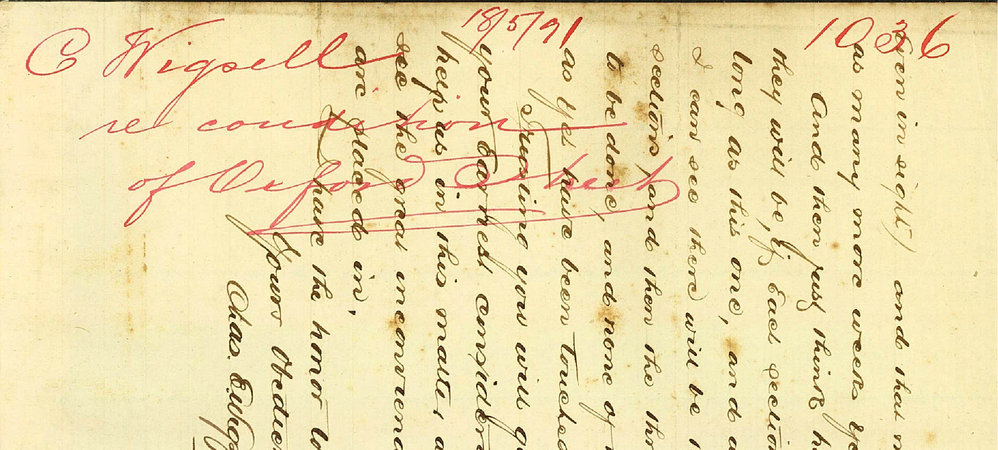 18/5/91
1036
C Wigsell
re condition
of Oxford Street
in sight) and that
as many more weeks
And then just think
they will be, if Each section
long as this one, and
I can see there will be
section, and then the
to be done, and none of
as yet have been touched
Trusting you will
your Earnest consider
help us in this matter
see the great inconven
are placed in,
I have the honor to
Yours Obedien
Chas. E. Wigs